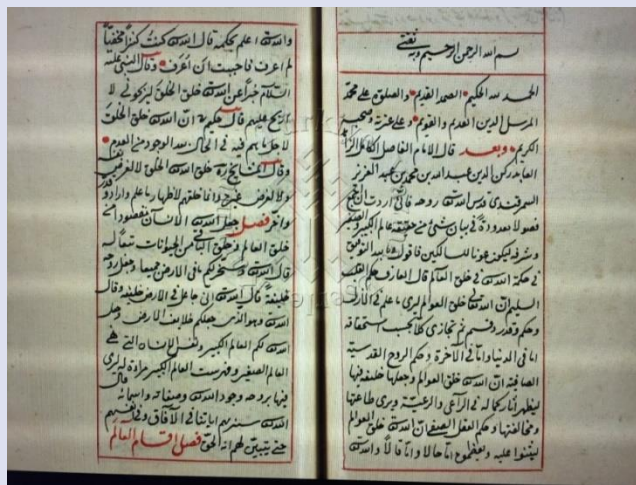 بسم الله الرحمن الرحيم وبه ثقتي
الحمد لله الحكيم الصمد القديم والصلوة على محمد
المرسل الدين القديم والقويم وعلى عترته وصحبه
الكريم وبعد قال الامام الفاضل الكامل
العابد ركن الدين عبد الله بن محمد بن عبد العزيز
السمرقندي قدس الله روحه قال اردت ان اجمع
فصولا معدودة في بيان شئ من حقيقة عالم الكبير والصغير
وشرفه ليكون عونا للسالكين فاقول وبالله التوفيق
في حكمة الله في خلق العالم قال العارف حكم القلب
السليم ان الله خلق العوالم ليرى ما علم في الازل
وحكم وقدر وقسم ثم تجازى كلا بحسب استحقاقه
اما في الدنيا واما في الآخرة وحكم الروح القدسية
الصافية ان الله خلق العوالم وجعلها خليفة فيها
ليظهر آثار كماله في الراعى والرعية ويرى طاعتها
ومخالفتها وحكم العقل الصفي ان الله خلق العوالم
ليثنوا عليه ويعظموه اما حالا واما قالا والله
والله اعلم بحكمه قال الله كنت كنزا مخفيا
لم اعرف فاحببت ان اعرف وقال النبي عليه
السلام خبرا عن الله خلق الخلق ليربحوني لا
لاربح عليهم قال حكيم ان الله خلق الخلق
لاجل ما بهم فيه في الحال بعد الوجود من العدم
وقال المشايخ ره خلق الله الخلق لا لغرض نفسه
ولا لغرض غيره وانما خلقهم لاظهار ما علم واراد وقدر
واخر فصل جعل الله الانسان مقصودا في
خلق العالم وخلق الباقي من الحيوانات تبعا له
قال الله وسخر لكم ما في الارض جميعا وجعل روحه
خليفة قال الله انى جاعل في الارض خليفة وقال
الله وهو الذي جعلكم خلائف الارض جعل
الله لكم العالم الكبير ولنفس الانسان التي هي
العالم الصغير وفهرست العالم الكبير مرآة له ليرى
فيها بروحه وجود الله وصفاته واسمائه قال
الله سنريهم اياتنا في الآفاق وفي انفسهم
حتى يتبين لهم انه الحق فصل اقسام العالم